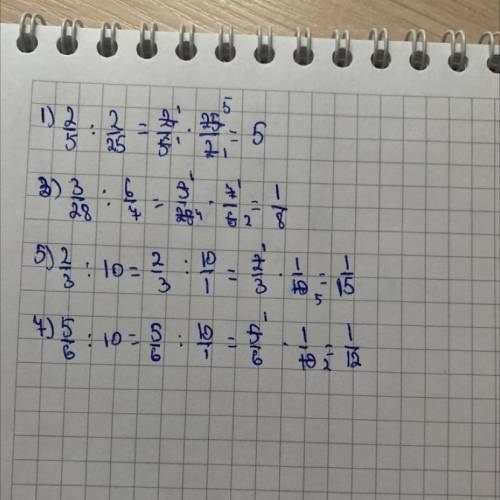 1) 2/5 : 2/25 = 2̶¹/5̶₁ · 2̶5̶⁵/2̶₁ = 5
3) 3/28 : 6/7 = 3̶¹/2̶8̶₄ · 7̶¹/6̶₂ = 1/8
5) 2/3 : 10 = 2/3 : 10/1 = 2̶¹/3 · 1/1̶0̶₅ = 1/15
7) 5/6 : 10 = 5/6 : 10/1 = 5̶¹/6 · 1/1̶0̶₂ = 1/12